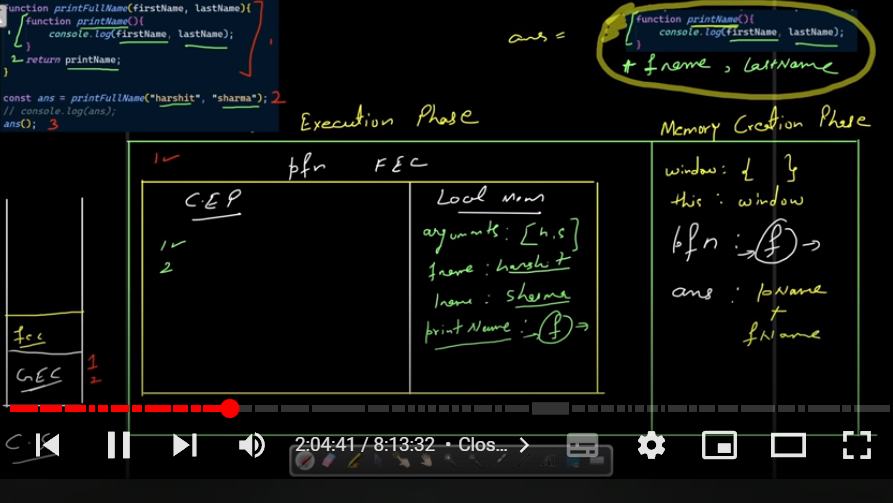 function printFullName(firstName, lastName){
function printName(){
console.log(firstName, lastName);
}
return printName;
}
const ans = printFullName("harshit", "sharma");
// console.log(ans);
ans();
1
2
1
2
3
ans =
function printName(){
console.log(firstName, lastName);
}
+ fname, lastName
Execution Phase
Memory Creation Phase
1✓
pfn FEC
C.E.P
1✓
2
Local Mem
arguments: [h,s]
fname: harshit
lname: sharma
printName: → f →
window: { }
this: window
pfn: → f →
ans: pName
+
fName
fec
GEC
1
2
C.S
2:04:41 / 8:13:32 • Clos... >